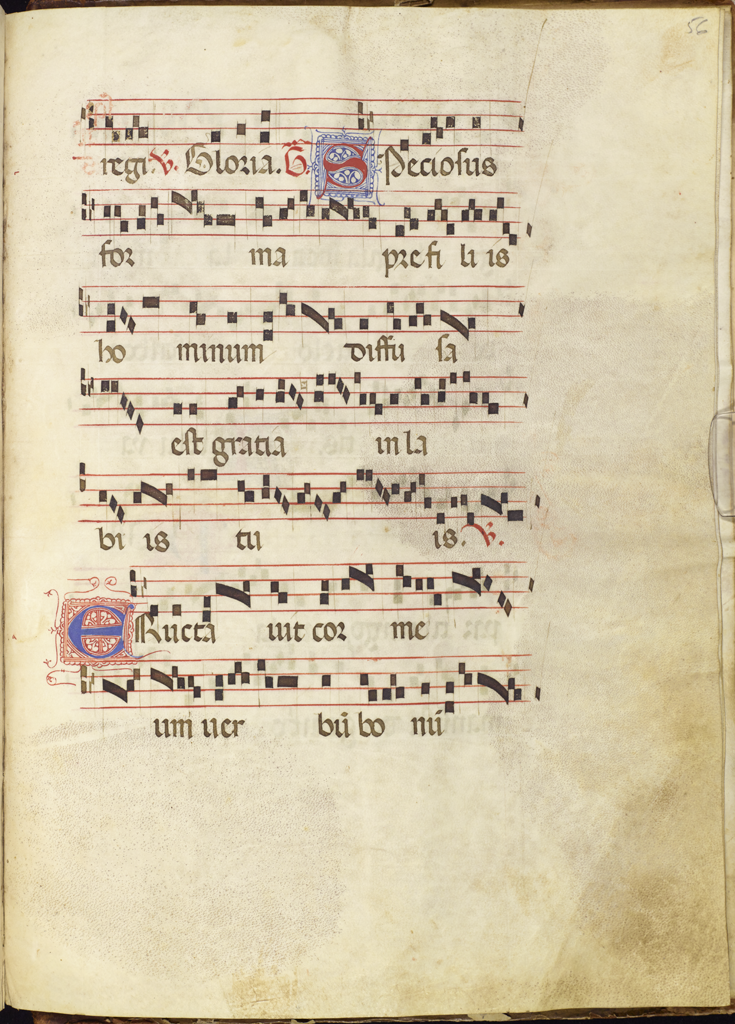 56
regi. V. Gloria. G. SPeciosus
for ma pre fi li is
ho minum diffu sa
est gratia in la
bi is tu is. V.
ERucta uit cor me
um uer bū bo nū